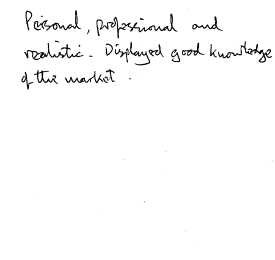 Personal, professional and
realistic. Displayed good knowledge
of the market.